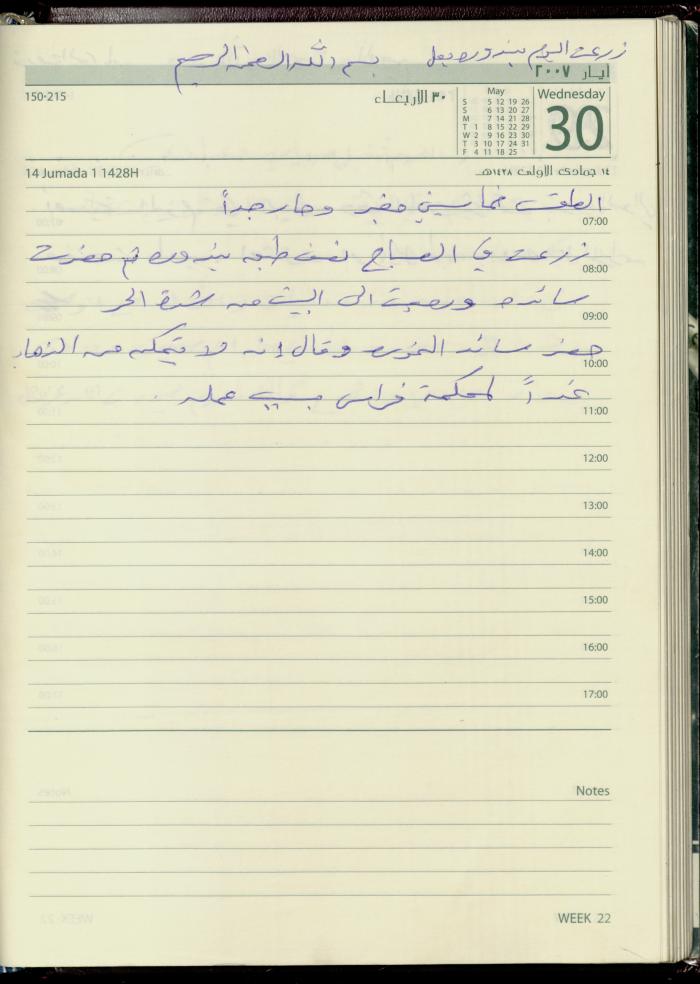 زرعت اليوم بندوره بعل بسم الله الرحمن الرحيم
أيار ٢٠٠٧
150-215
٣٠ الأربعاء
May
S 5 12 19 26
S 6 13 20 27
M 7 14 21 28
T 1 8 15 22 29
W 2 9 16 23 30
T 3 10 17 24 31
F 4 11 18 25
Wednesday
30
14 Jumada 1 1428H
١٤ جمادى الأولى ١٤٢٨هـ
الطقس خماسيني مغبر وحار جداً
07:00
زرعت في الصباح بندوره ثم حضرت
08:00
سائده الى البيت من شدة الحر
09:00
حضر سائد وقال إنه لا يتمكن من الذهاب
10:00
غداً لمحكمة فراس بسبب عمله .
11:00
12:00
13:00
14:00
15:00
16:00
17:00
Notes
WEEK 22